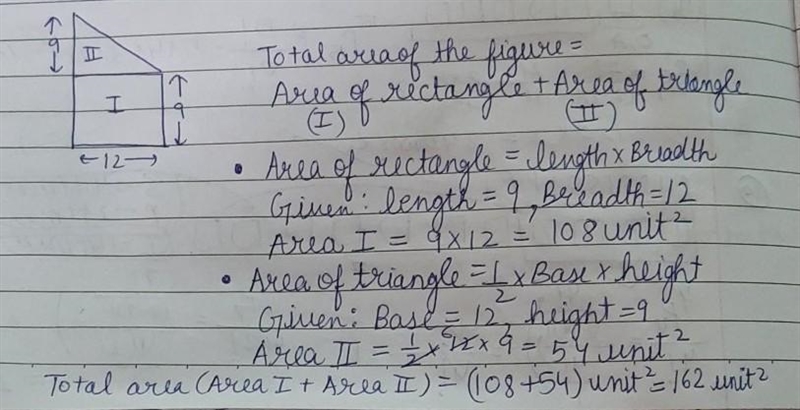 9
II
I
9
12
Total area of the figure =
Area of rectangle + Area of triangle
(I) (II)
• Area of rectangle = length × Breadth
Given: length = 9, Breadth = 12
Area I = 9 × 12 = 108 unit²
• Area of triangle = 1/2 × Base × height
Given: Base = 12, height = 9
Area II = 1/2 × 12 6 × 9 = 54 unit²
Total area (Area I + Area II) = (108 + 54) unit² = 162 unit²